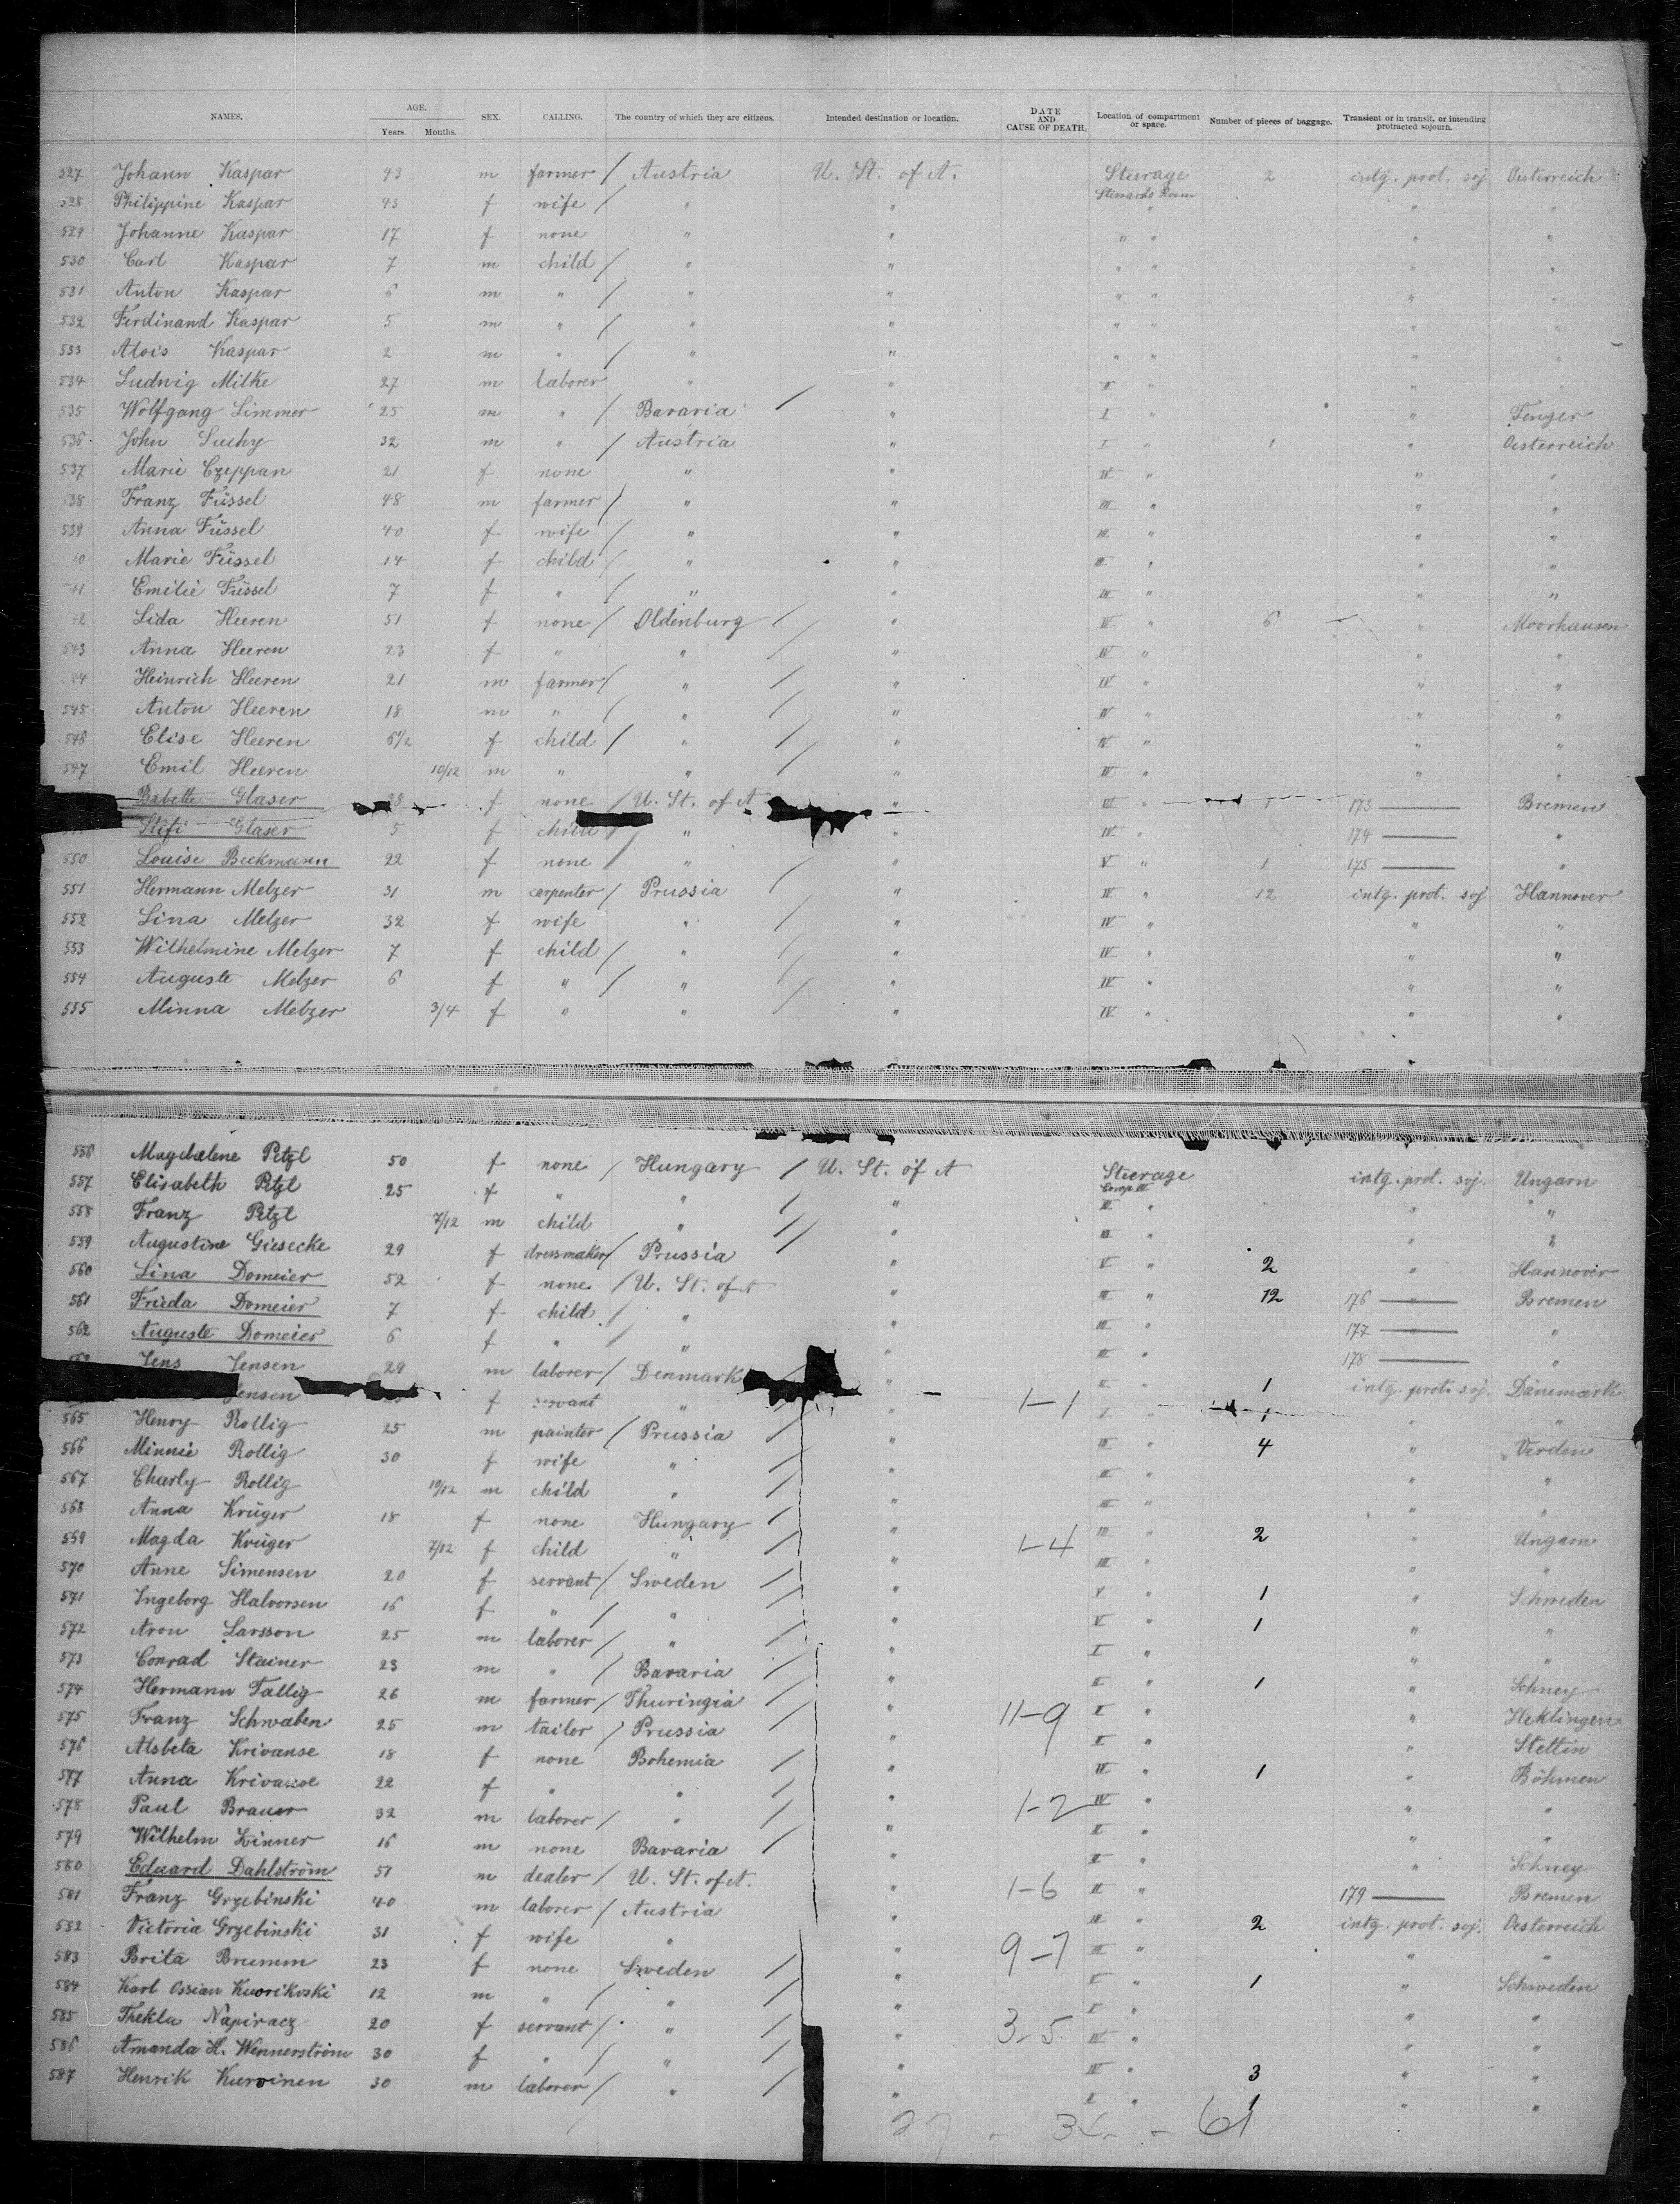 NAMES. AGE. Years. Months. SEX. CALLING. The country of which they are citizens. Intended destination or location. DATE AND CAUSE OF DEATH. Location of compartment or space. Number of pieces of baggage. Transient or in transit, or intending protracted sojourn.
527 Johann Kaspar 43 m farmer / Austria U. St. of A. Steerage 2 intg. prot. soj Oesterreich
528 Philippine Kaspar 43 f wife / " " Stewards Room " " "
529 Johanne Kaspar 17 f none " " " " " "
530 Carl Kaspar 7 m child / " " " " " "
531 Anton Kaspar 6 m " / " " " " " "
532 Ferdinand Kaspar 5 m " / " " " " " "
533 Alois Kaspar 2 m " / " " " " " "
534 Ludwig Milke 27 m laborer " " I " " "
535 Wolfgang Simmer 25 m " / Bavaria / " I " "
536 John Suchy 32 m " / Austria " I " 1 " Oesterreich
537 Marie Czeppan 21 f none " " IV " " "
538 Franz Füssel 48 m farmer / " " III " " "
539 Anna Füssel 40 f wife / " " III " " "
Marie Füssel 14 f child / " " III " " "
41 Emilie Füssel 7 f " / " " III " " "
Lida Heeren 51 f none / Oldenburg / " IV " 6 " Moorhausen
543 Anna Heeren 23 f " " / " IV " " "
Heinrich Heeren 21 m farmer / " / " IV " " "
545 Anton Heeren 18 m " / " / " IV " " "
546 Elise Heeren 6 1/2 f child / " / " IV " " "
547 Emil Heeren 10/12 m " " / " IV " " "
Babette Glaser 28 f none / U. St. of A " IV " 173 — Bremen
Glaser 5 f child / " IV " 174 — "
550 Louise Beckmann 22 f none / " / " V " 1 175 — "
551 Hermann Melzer 31 m carpenter / Prussia / " IV " 12 intg. prot. soj Hannover
552 Lina Melzer 32 f wife " / " IV " " "
553 Wilhelmine Melzer 7 f child / " / " IV " " "
554 Auguste Melzer 6 f " / " / " IV " " "
555 Minna Melzer 3/4 f " " / " IV " " "
556 Magdalene Petzl 50 f none / Hungary / U. St. of A Steerage intg. prot. soj. Ungarn
557 Elisabeth Petzl 25 f " " / " Comp. III " " "
558 Franz Petzl 7/12 m child " / " III " " "
559 Augustine Giesecke 29 f dressmaker / Prussia / " V " 2 " Hannover
560 Lina Domeier 52 f none / U. St. of A " III " 12 176 — Bremen
561 Frieda Domeier 7 f child / " " III " 177 — "
562 Auguste Domeier 6 f " / " " III " 178 — "
Jens Jensen 29 m laborer / Denmark " II " 1 intg. prot. soj. Dänemark
Jensen f servant " " 1-1 I " 1 " "
565 Henry Rollig 25 m painter / Prussia / " III " 4 " Verden
566 Minnie Rollig 30 f wife " / " III " " "
567 Charly Rollig 10/12 m child " / " III " " "
568 Anna Krüger 18 f none Hungary / " III " 2 " Ungarn
559 Magda Krüger 7/12 f child " / " 1-4 III " " "
570 Anne Simensen 20 f servant / Sweden / " V " 1 " Schweden
571 Ingeborg Halvorsen 16 f " / " / " V " 1 " "
572 Aron Larsson 25 m laborer / " / " I " " "
573 Conrad Stainer 23 m " / Bavaria / " II " 1 " Schney
574 Hermann Tallig 26 m farmer / Thuringia / " 11-9 I " " Heklingen
575 Franz Schwaben 25 m tailor / Prussia / " I " " Stettin
576 Alsbeta Krivanse 18 f none Bohemia / " IV " 1 " Böhmen
577 Anna Krivanse 22 f " " / " 1-2 IV " " "
578 Paul Brauer 32 m laborer / " / " II " " "
579 Wilhelm Linner 16 m none Bavaria / " II " " Schney
580 Eduard Dahlström 51 m dealer / U. St. of A. " 1-6 II " 179 — Bremen
581 Franz Grzebinski 40 m laborer / Austria " III " 2 intg. prot. soj. Oesterreich
582 Victoria Grzebinski 31 f wife " " 9-7 III " " "
583 Brita Brumm 23 f none Sweden / " I " 1 " Schweden
584 Karl Ossian Kuorikoski 12 m " / " / " I " " "
585 Thekla Napiracz 20 f servant / " / " 3-5 IV " " "
586 Amanda H. Wennerström 30 f " / " / " IV " 3 " "
587 Henrik Kuroinen 30 m laborer / " / " I " 1 " "
61